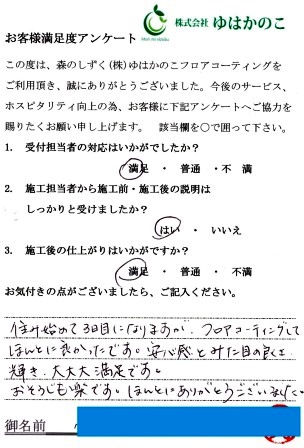 株式会社 ゆはかのこ
お客様満足度アンケート
この度は、森のしずく(株)ゆはかのこフロアコーティングを
ご利用頂き、誠にありがとうございました。今後のサービス、
ホスピタリティ向上の為、お客様に下記アンケートへご協力を
賜りたくお願い申し上げます。 該当欄を○で囲って下さい。
1. 受付担当者の対応はいかがでしたか?
満足 ・ 普通 ・ 不満
2. 施工担当者から施工前・施工後の説明は
しっかりと受けましたか?
はい ・ いいえ
3. 施工後の仕上がりはいかがですか?
満足 ・ 普通 ・ 不満
お気付きの点がございましたら、ご記入ください。
住み始めて3日目になりますが、フロアコーティングして
ほんとに良かったです。安心感とみた目の良さ
輝き、大大大満足です。
おそうじも楽です。ほんとにありがとうございました。
御名前